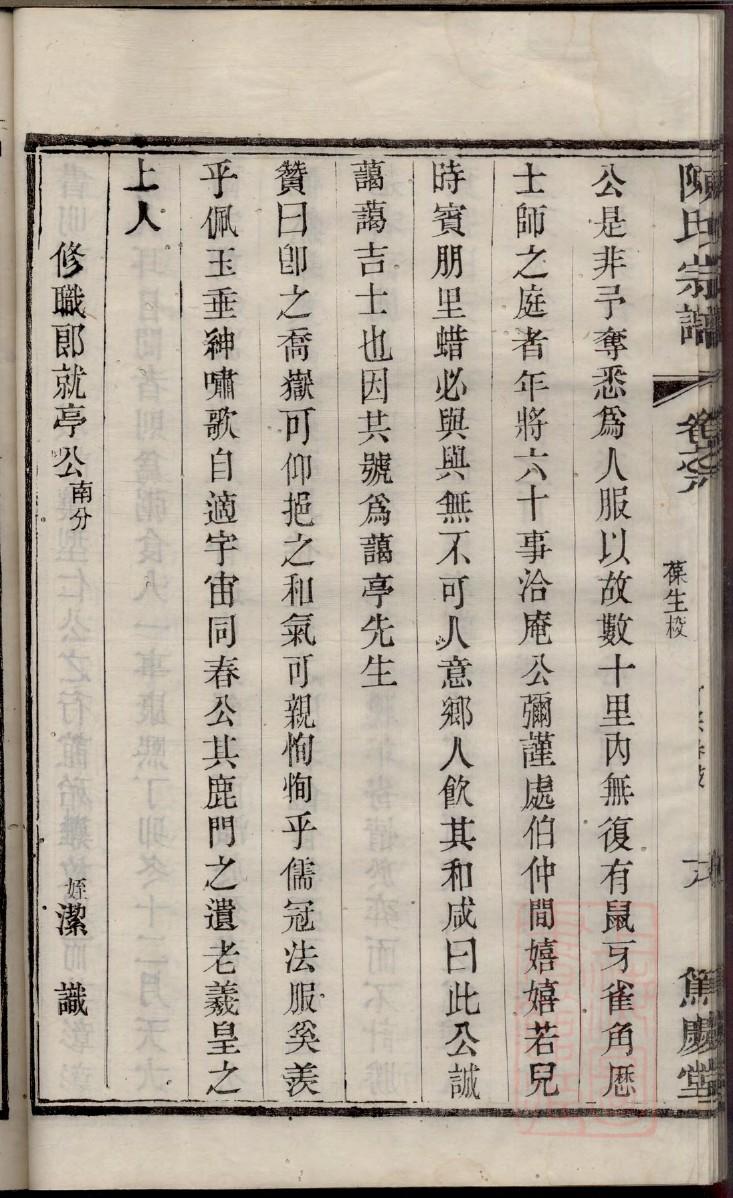 陳氏宗譜
葆生校
篤慶堂
公是非予奪悉爲人服以故數十里內無復有鼠牙雀角歷
士師之庭者年將六十事洽庵公彌謹處伯仲間嬉嬉若兒
時賓朋里蜡必與與無不可人意鄉人飮其和咸曰此公誠
藹藹吉士也因共號爲藹亭先生
贊曰卽之喬嶽可仰挹之和氣可親恂恂乎儒冠法服奚羨
乎佩玉垂紳嘯歌自適宇宙同春公其鹿門之遺老羲皇之
上人
修職郞就亭公南分 姪潔識